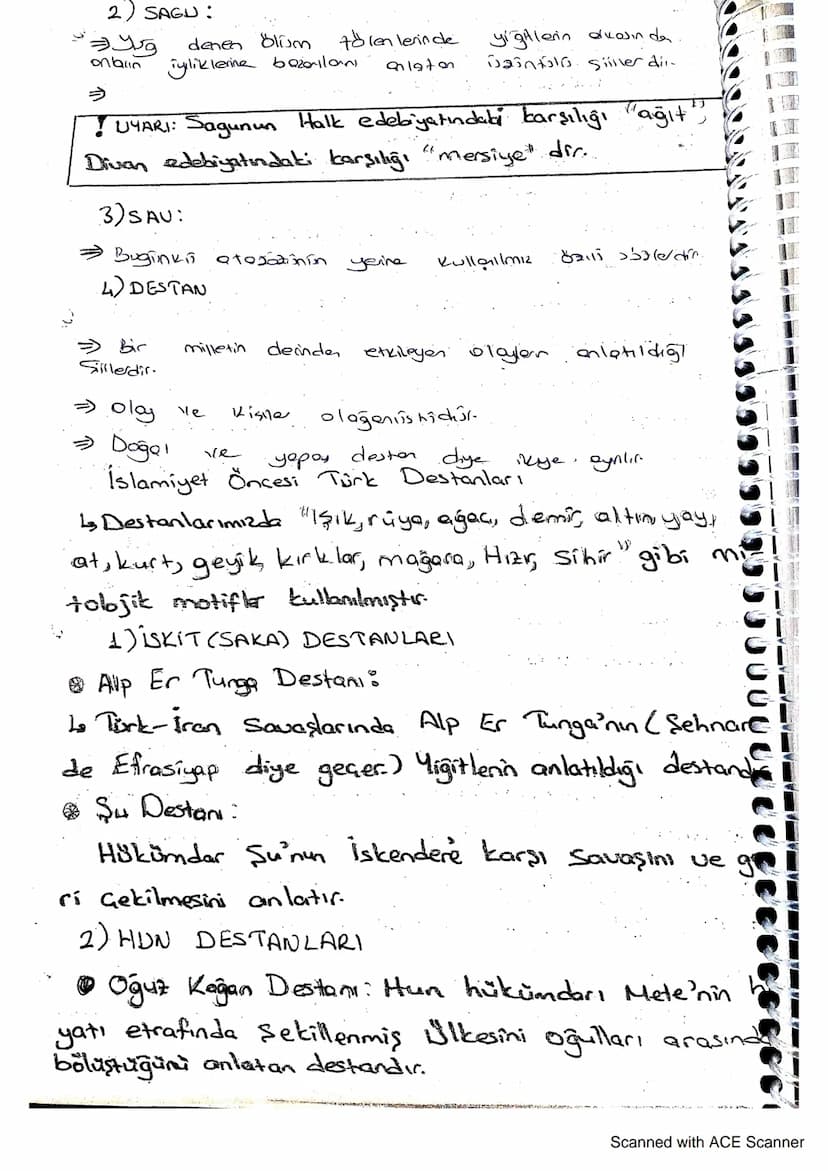 2) SAGU:
⇒ Yuğ denen ölüm törenlerinde yiğitlerin arkasından
onların iyiliklerine başarılarını anlatan üzüntülü şiirlerdir.
⇒
! UYARI: Sagunun Halk edebiyatındaki karşılığı "ağıt",
Divan edebiyatındaki karşılığı "mersiye" dir.
3) SAV:
⇒ Bugünkü atasözünün yerine kullanılmız özlü sözlerdir.
4) DESTAN
⇒ Bir milletin derinden etkileyen olayların anlatıldığı
Şiirlerdir.
⇒ Olay ve kişiler olağanüstüdür.
⇒ Doğal ve yapay destan diye ikiye ayrılır.
İslamiyet Öncesi Türk Destanları
↳ Destanlarımızda "Işık, rüya, ağaç, demir, altın yay,
at, kurt, geyik, kırklar, mağara, Hızır, sihir" gibi mi
tolojik motifler kullanılmıştır.
1) İSKİT (SAKA) DESTANLARI
⊛ Alp Er Tunga Destanı:
↳ Türk-İran Savaşlarında Alp Er Tunga'nın (Şehname
de Efrasiyap diye geçer.) Yiğitlerin anlatıldığı destandır
⊛ Şu Destanı:
Hükümdar Şu'nun İskender'e karşı Savaşını ve ge
ri Çekilmesini anlatır.
2) HUN DESTANLARI
Oğuz Kağan Destanı: Hun hükümdarı Mete'nin ha
yatı etrafında Şekillenmiş Ülkesini oğulları arasında
bölüştüğünü anlatan destandır.
Scanned with ACE Scanner